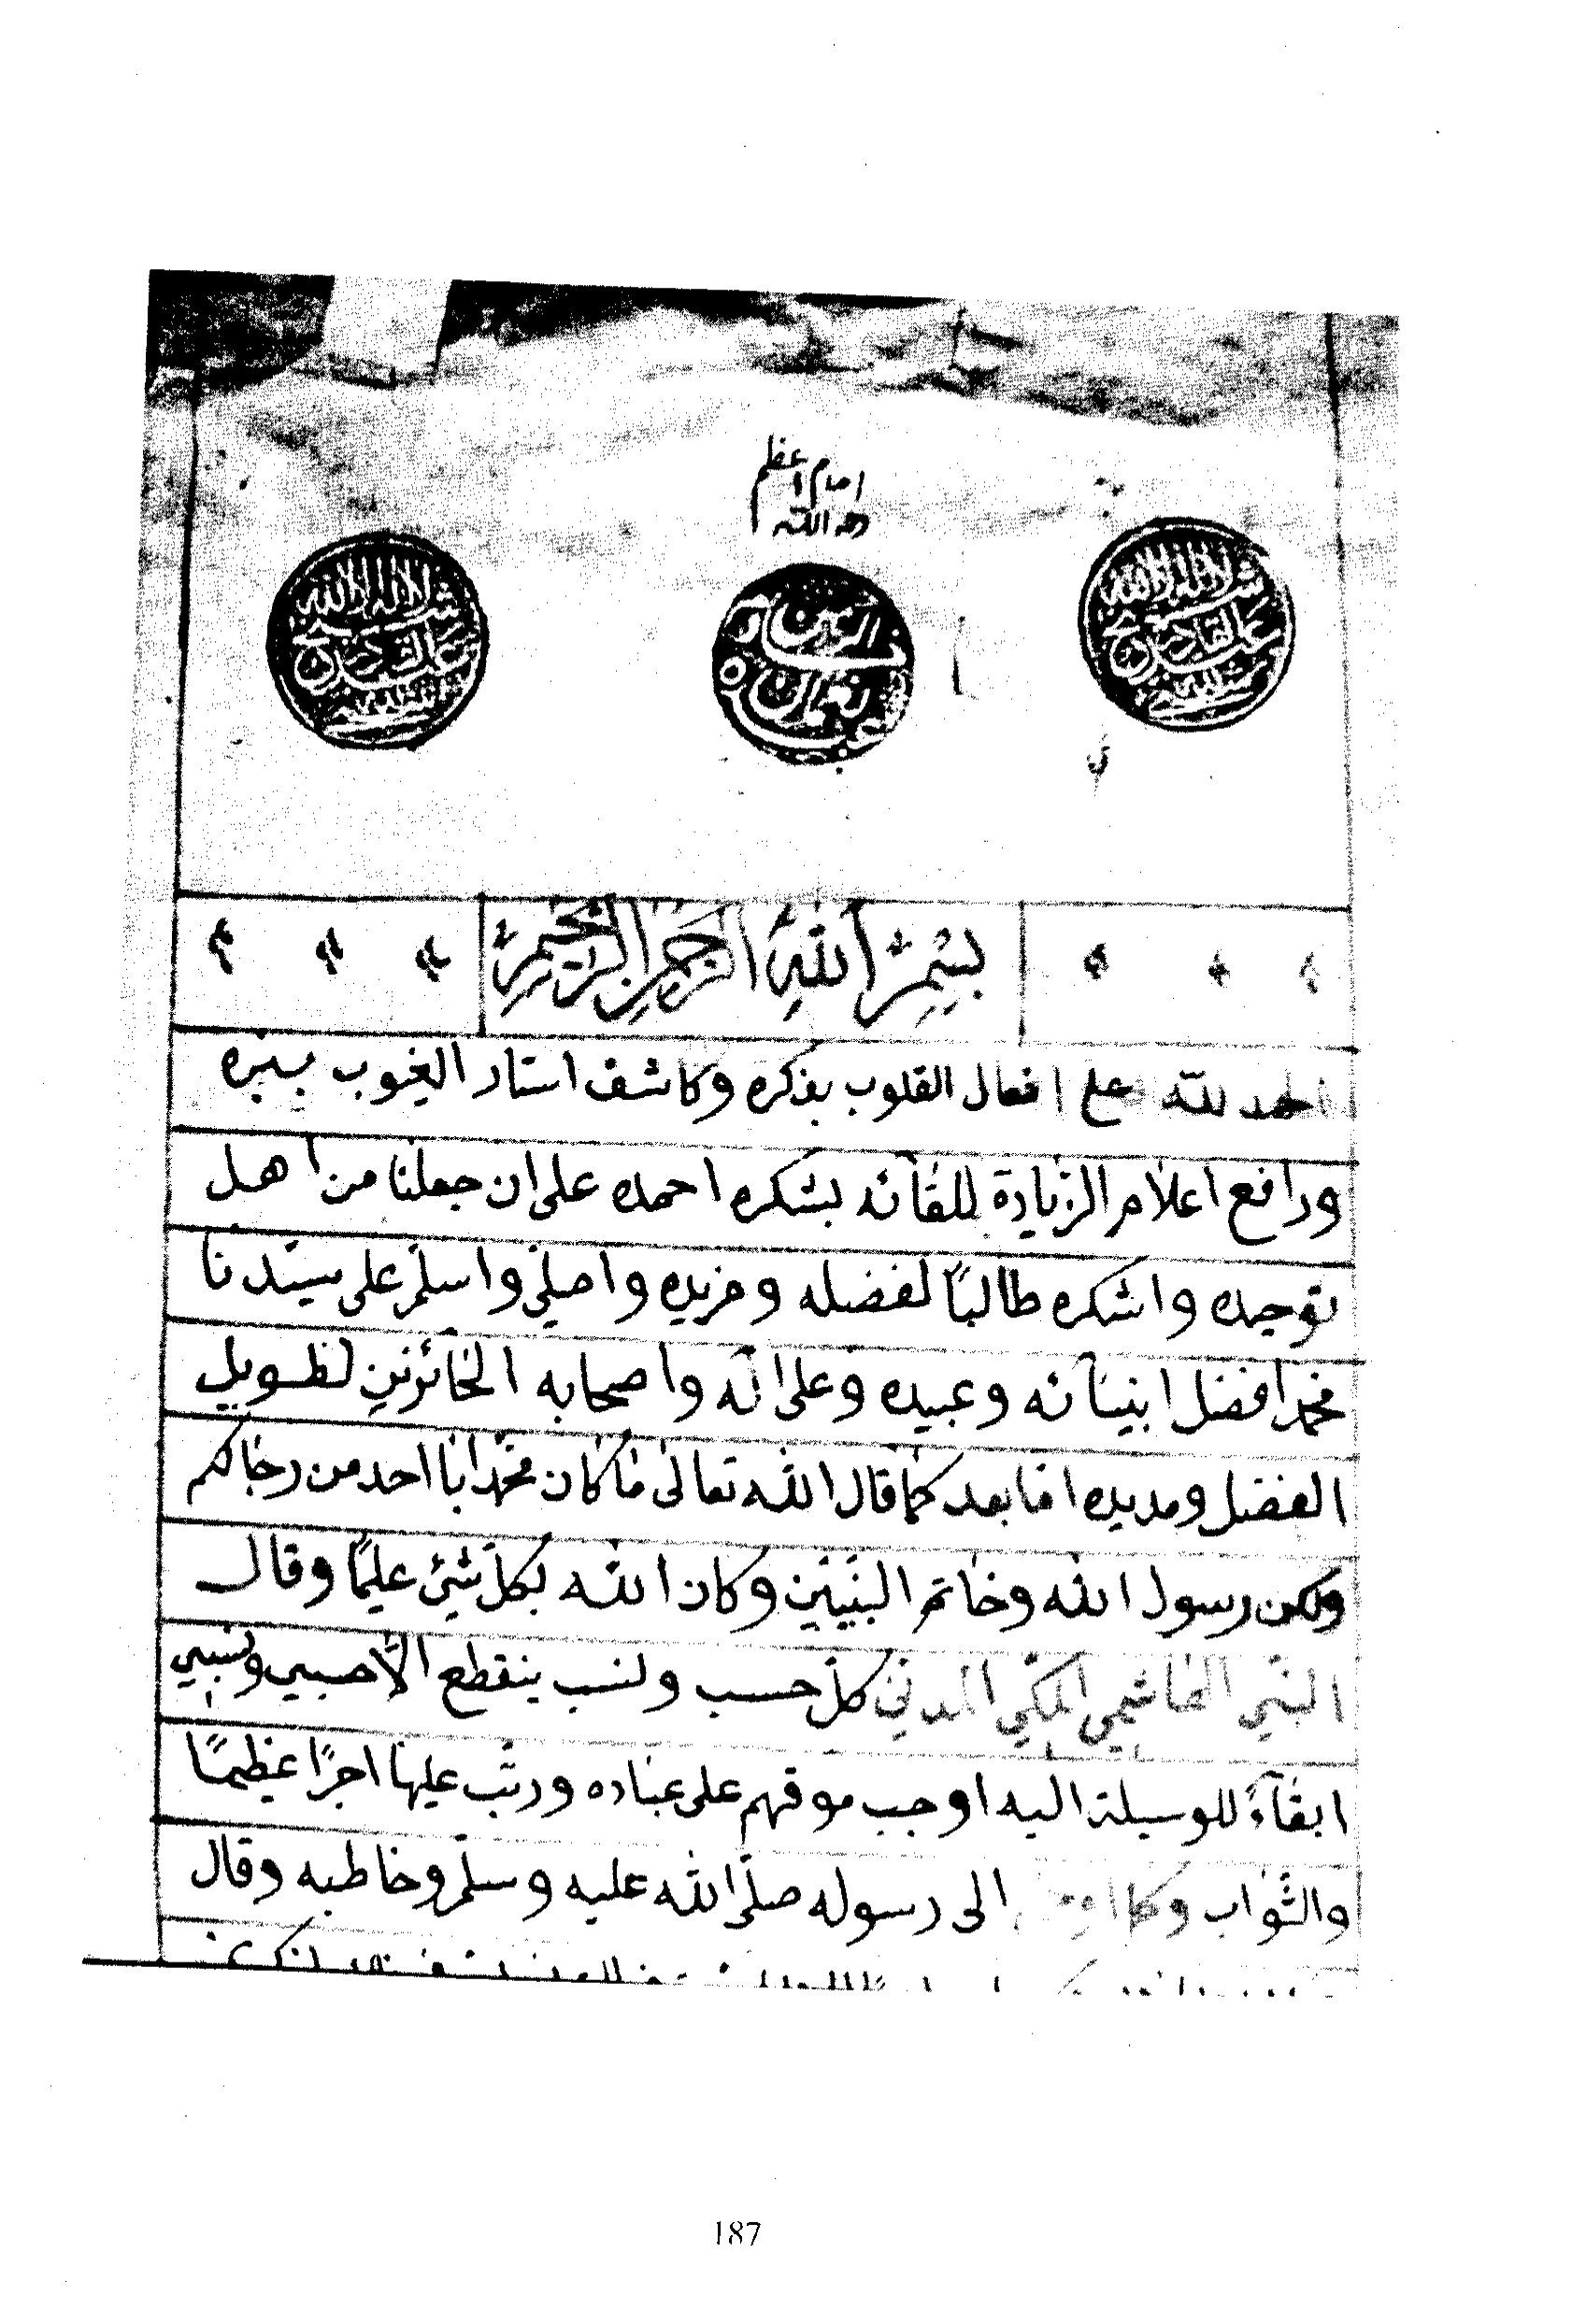 امام اعظم
رحمه الله
لا اله الا الله
لا اله الا الله
بسم الله الرحمن الرحيم
الحمد لله على افعال القلوب بذكره وكاشف استار الغيوب ببره
ورافع اعلام الزيادة للقائه بشكره احمده على ان جعلنا من اهل
توحيده واشكره طالبًا لفضله ومزيده واصلّي واسلّم على سيّدنا
محمد افضل انبيائه وعبيده وعلى آله واصحابه الحائزين لطويل
الفضل ومديده اما بعد كما قال الله تعالى ما كان محمّد ابا احد من رجالكم
ولكن رسول الله وخاتم النبيّين وكان الله بكلّ شيئ عليمًا وقال
النّبي الهاشمي المكّي المدني كلّ حسب ونسب ينقطع الّا حسبي ونسبي
ابقآءً للوسيلة اليه اوجب موقهم على عباده ورتّب عليها اجرًا عظيمًا
والثّواب وكما الى رسوله صلّى الله عليه وسلّم وخاطبه وقال
187